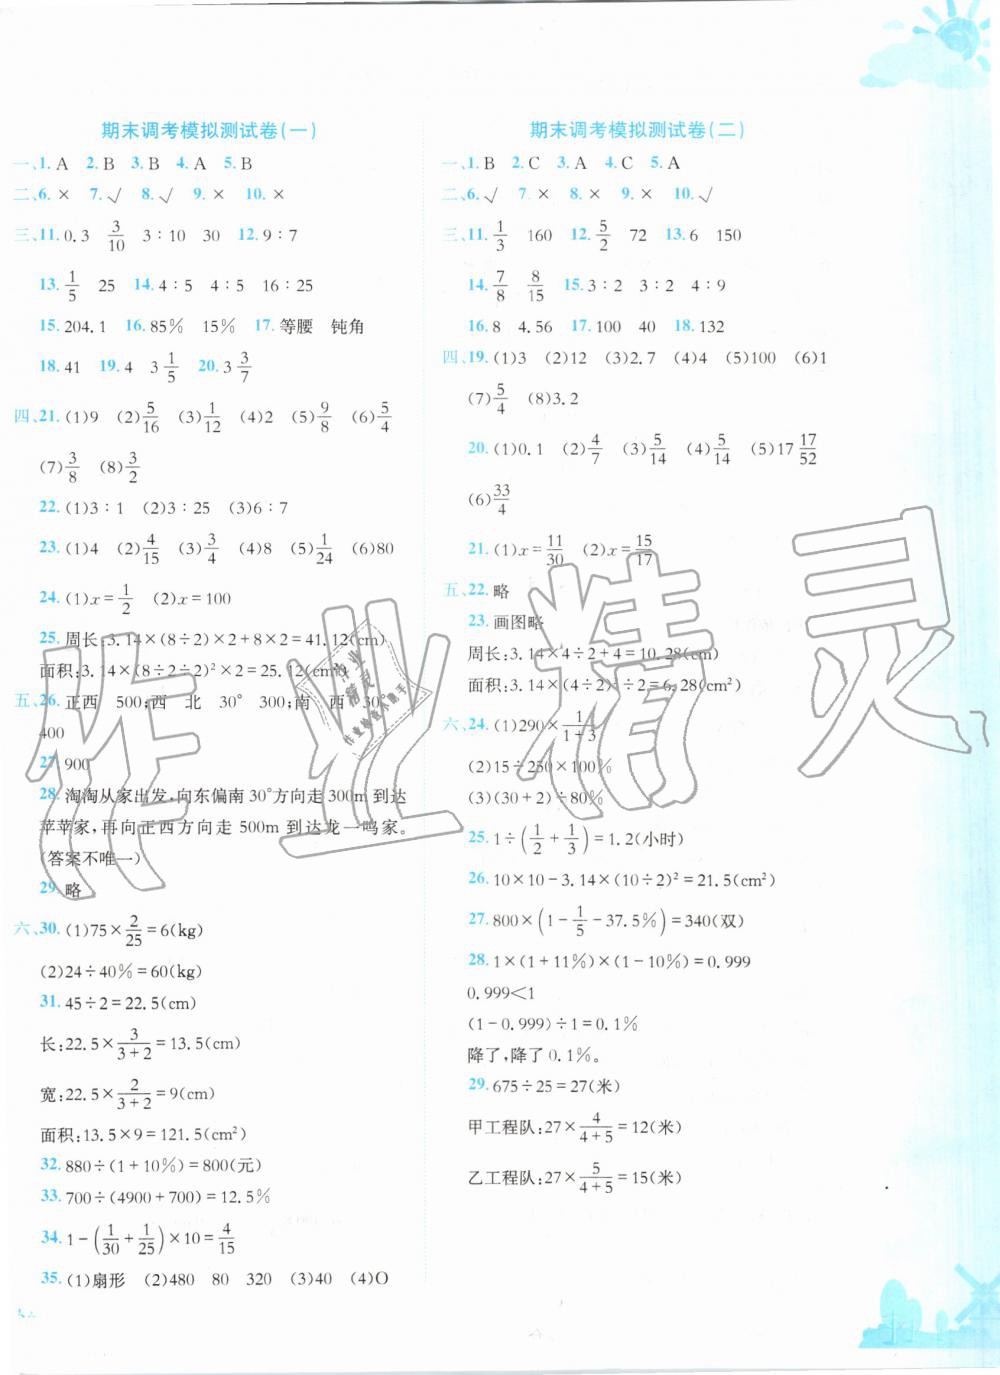 期末调考模拟测试卷(一)
一、1. A 2. B 3. B 4. A 5. B
二、6. × 7. √ 8. √ 9. × 10. ×
三、11. 0.3 3/10 3∶10 30 12. 9∶7
13. 1/5 25 14. 4∶5 4∶5 16∶25
15. 204.1 16. 85% 15% 17. 等腰 钝角
18. 41 19. 4 3 1/5 20. 3 3/7
四、21. (1)9 (2)5/16 (3)1/12 (4)2 (5)9/8 (6)5/4
(7)3/8 (8)3/2
22. (1)3∶1 (2)3∶25 (3)6∶7
23. (1)4 (2)4/15 (3)3/4 (4)8 (5)1/24 (6)80
24. (1)x=1/2 (2)x=100
25. 周长:3.14×(8÷2)×2+8×2=41.12(cm)
面积:3.14×(8÷2÷2)²×2=25.12(cm²)
五、26. 正西 500;西 北 30° 300;南 西 30°
400
27. 900
28. 淘淘从家出发,向东偏南30°方向走300m到达
苹苹家,再向正西方向走500m到达龙一鸣家。
(答案不唯一)
29. 略
六、30. (1)75×2/25=6(kg)
(2)24÷40%=60(kg)
31. 45÷2=22.5(cm)
长:22.5×3/(3+2)=13.5(cm)
宽:22.5×2/(3+2)=9(cm)
面积:13.5×9=121.5(cm²)
32. 880÷(1+10%)=800(元)
33. 700÷(4900+700)=12.5%
34. 1-(1/30+1/25)×10=4/15
35. (1)扇形 (2)480 80 320 (3)40 (4)O
期末调考模拟测试卷(二)
一、1. B 2. C 3. A 4. C 5. A
二、6. √ 7. × 8. √ 9. × 10. √
三、11. 1/3 160 12. 5/2 72 13. 6 150
14. 7/8 8/15 15. 3∶2 3∶2 4∶9
16. 8 4.56 17. 100 40 18. 132
四、19. (1)3 (2)12 (3)2.7 (4)4 (5)100 (6)1
(7)5/4 (8)3.2
20. (1)0.1 (2)4/7 (3)5/14 (4)5/14 (5)17 17/52
(6)33/4
21. (1)x=11/30 (2)x=15/17
五、22. 略
23. 画图略
周长:3.14×4÷2+4=10.28(cm)
面积:3.14×(4÷2)²÷2=6.28(cm²)
六、24. (1)290×1/(1+3)
(2)15÷250×100%
(3)(30+2)÷80%
25. 1÷(1/2+1/3)=1.2(小时)
26. 10×10-3.14×(10÷2)²=21.5(cm²)
27. 800×(1-1/5-37.5%)=340(双)
28. 1×(1+11%)×(1-10%)=0.999
0.999<1
(1-0.999)÷1=0.1%
降了,降了0.1%。
29. 675÷25=27(米)
甲工程队:27×4/(4+5)=12(米)
乙工程队:27×5/(4+5)=15(米)
作业精灵